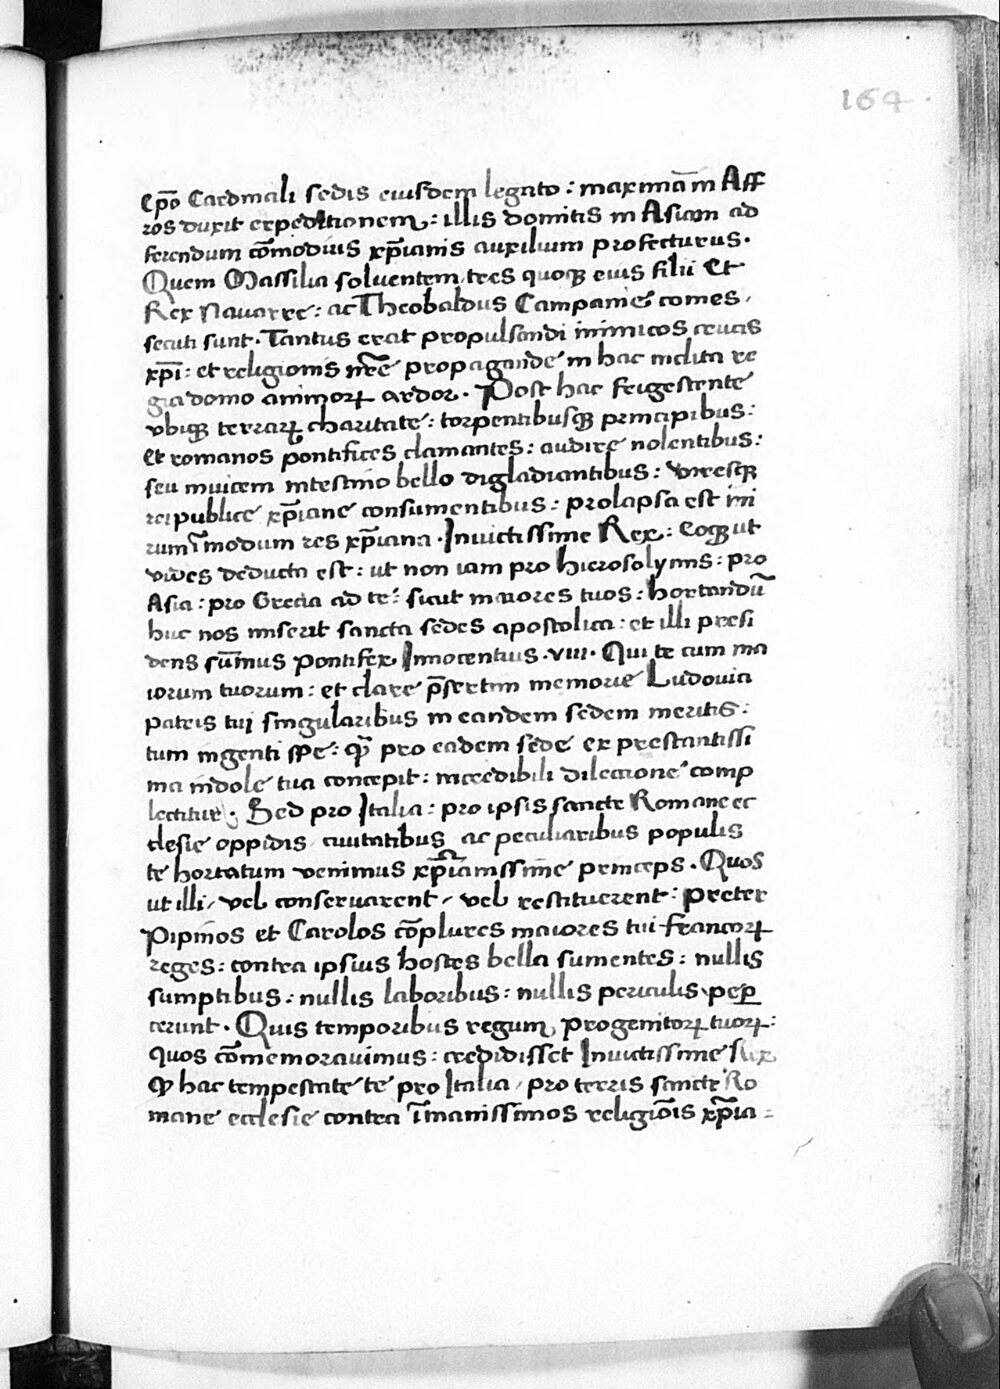 164
Ep̄o Cardinali sedis eiusdem legato : maximā in Aff
ros duxit expeditionem : illis domitis in Asiam ad
ferendum cō̄modius xp̄ianis auxilium profecturus .
Quem Massilia soluentem tres quoqꝫ eius filii Et
Rex Nauarre : ac Theobaldus Campanie comes ,
secuti sunt . Tantus erat propulsandi inimicos crucis
xp̄i : et religionis nr̄e propagande in hac inclita re
gia domo animoꝝ ardor . Post hac feigestente
vbiqꝫ terraꝝ charitate : torpentibusqꝫ principibus :
Et romanos pontifices clamantes : audire nolentibus :
seu inuicem intestino bello digladiantibus : viresqꝫ
rei publice xp̄iane consumentibus : prolapsa est mi
rum ī modum res xp̄iana . Inuictissime Rex : Eoqꝫ ut
vides deducta est : ut non iam pro hierosolymis : pro
Asia : pro Grecia ad te : sicut maiores tuos : hortandū
huc nos miserit sancta sedes apostolica : et illi presi
dens sūmus pontifex Innocentius . viii . Qui te cum ma
iorum tuorum : et clare p̄sertim memorie Ludouici
patris tui singularibus in eandem sedem meritis :
tum ingenti spe : qͣ pro eadem sede ex prestantissi
ma indole tua concepit : incredibili dilectione comp
lectitur . Sed pro Italia : pro ipsis sancte Romane ec
clesie oppidis ciuitatibus ac peculiaribus populis
te hortatum venimus xp̄ianissime princeps . Quos
ut illi , vel conseruarent , vel restituerent : preter
Pipinos et Carolos cōplures maiores tui francoꝝ
reges : contra ipsius hostes bella sumentes : nullis
sumptibus : nullis laboribus : nullis periculis pep̱
cerunt . Quis temporibus regum , progenitoꝝ tuoꝝ :
quos cōmemorauimus : credidisset Inuictissime Rex
qͫ hac tempestate te pro Italia , pro terris sancte Ro
mane ecclesie contra īmanissimos religiōis xp̄ia =